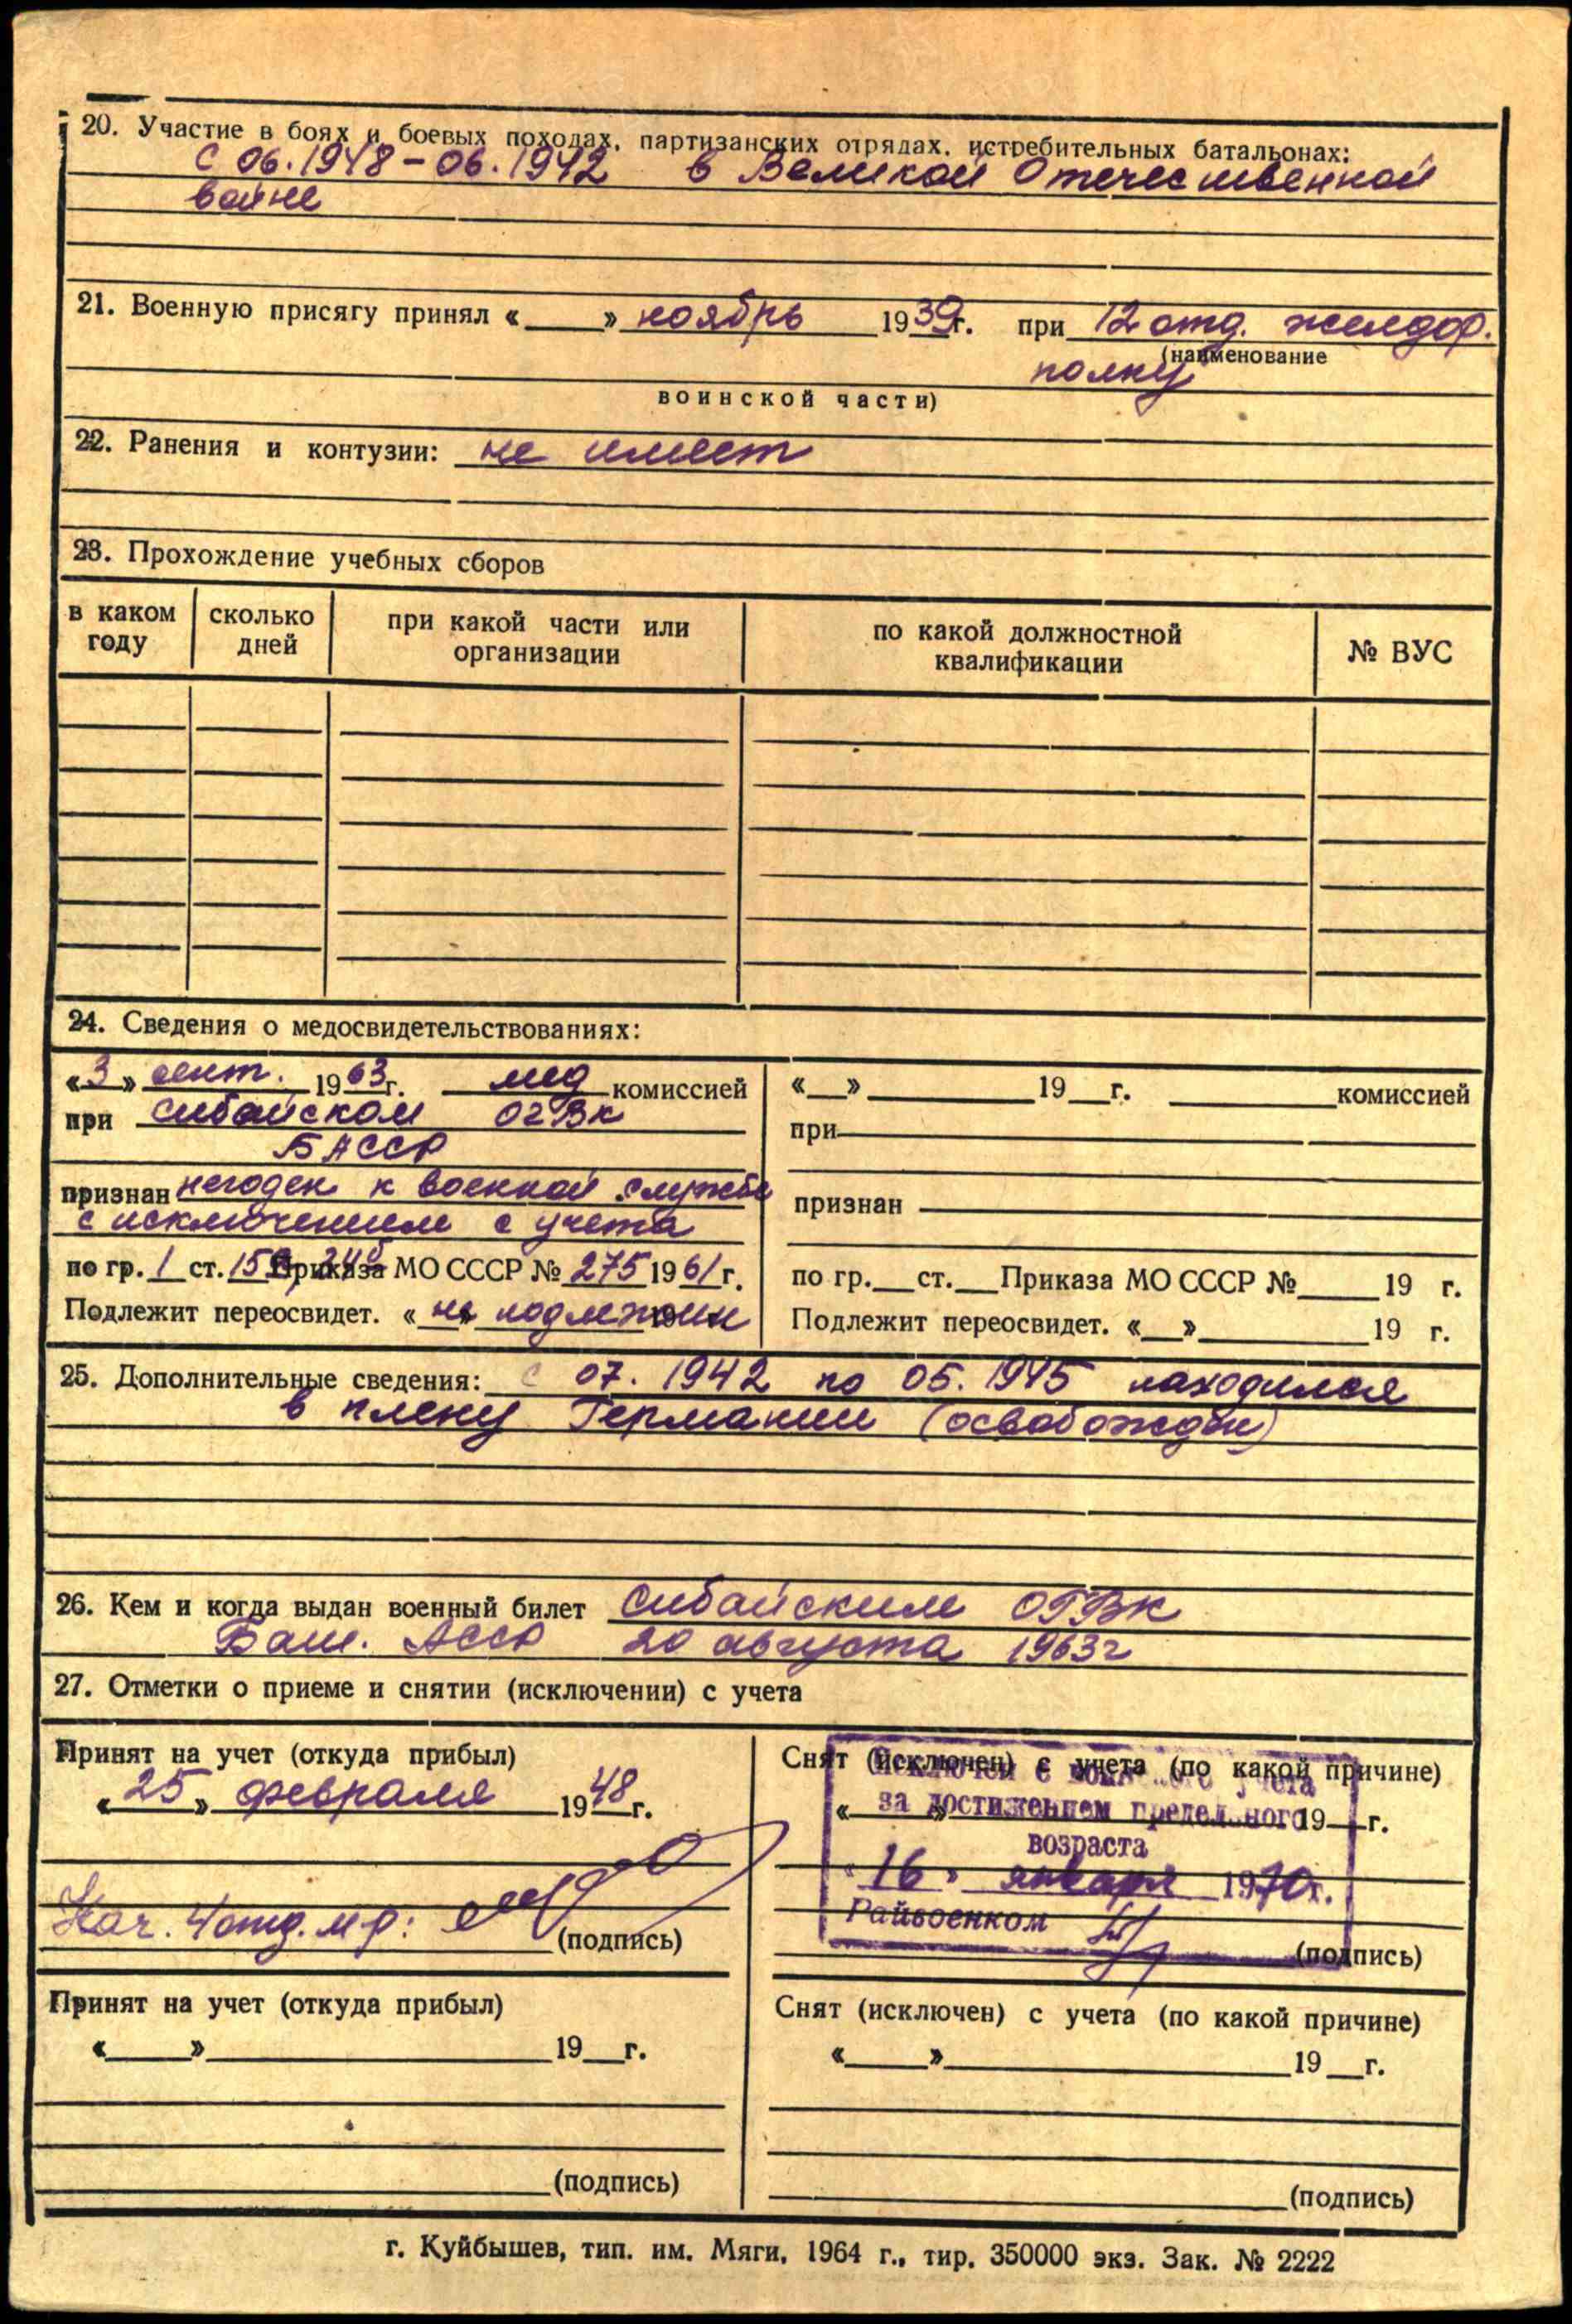 20. Участие в боях и боевых походах, партизанских отрядах, истребительных батальонах:
с 06.1948 - 06.1942 в Великой Отечественной
войне
21. Военную присягу принял « » ноябрь 1939г. при 12 отд. желдор.
(наименование
полку
воинской части)
22. Ранения и контузии: не имеет
23. Прохождение учебных сборов
в каком году
сколько дней
при какой части или организации
по какой должностной квалификации
№ ВУС
24. Сведения о медосвидетельствованиях:
«3» сент. 1963г. мед комиссией
при Сибайском ОГВК
БАССР
признан негоден к военной службе
с исключением с учета
по гр. 1 ст. Приказа МО СССР № 275 1961г.
Подлежит переосвидет. « » не подлежит 19
« » 19 г. комиссией
при
признан
по гр. ст. Приказа МО СССР № 19 г.
Подлежит переосвидет. « » 19 г.
25. Дополнительные сведения: с 07. 1942 по 05. 1945 находился
в плену Германии (освобожден)
26. Кем и когда выдан военный билет Сибайским ОГВК
Баш. АССР 20 августа 1963г
27. Отметки о приеме и снятии (исключении) с учета
Принят на учет (откуда прибыл)
«25» февраля 1948г.
Нач. 4 отд. м-р:
(подпись)
Снят (исключен) с учета (по какой причине)
« » 19 г.
Исключен с воинского учета
за достижением предельного
возраста
«16» января 1970г.
Райвоенком
(подпись)
Принят на учет (откуда прибыл)
« » 19 г.
(подпись)
Снят (исключен) с учета (по какой причине)
« » 19 г.
(подпись)
г. Куйбышев, тип. им. Мяги, 1964 г., тир. 350000 экз. Зак. № 2222